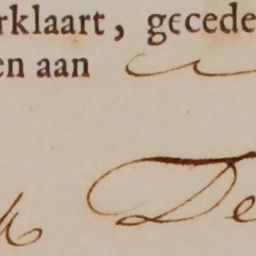 rklaart, gecede
en aan
De